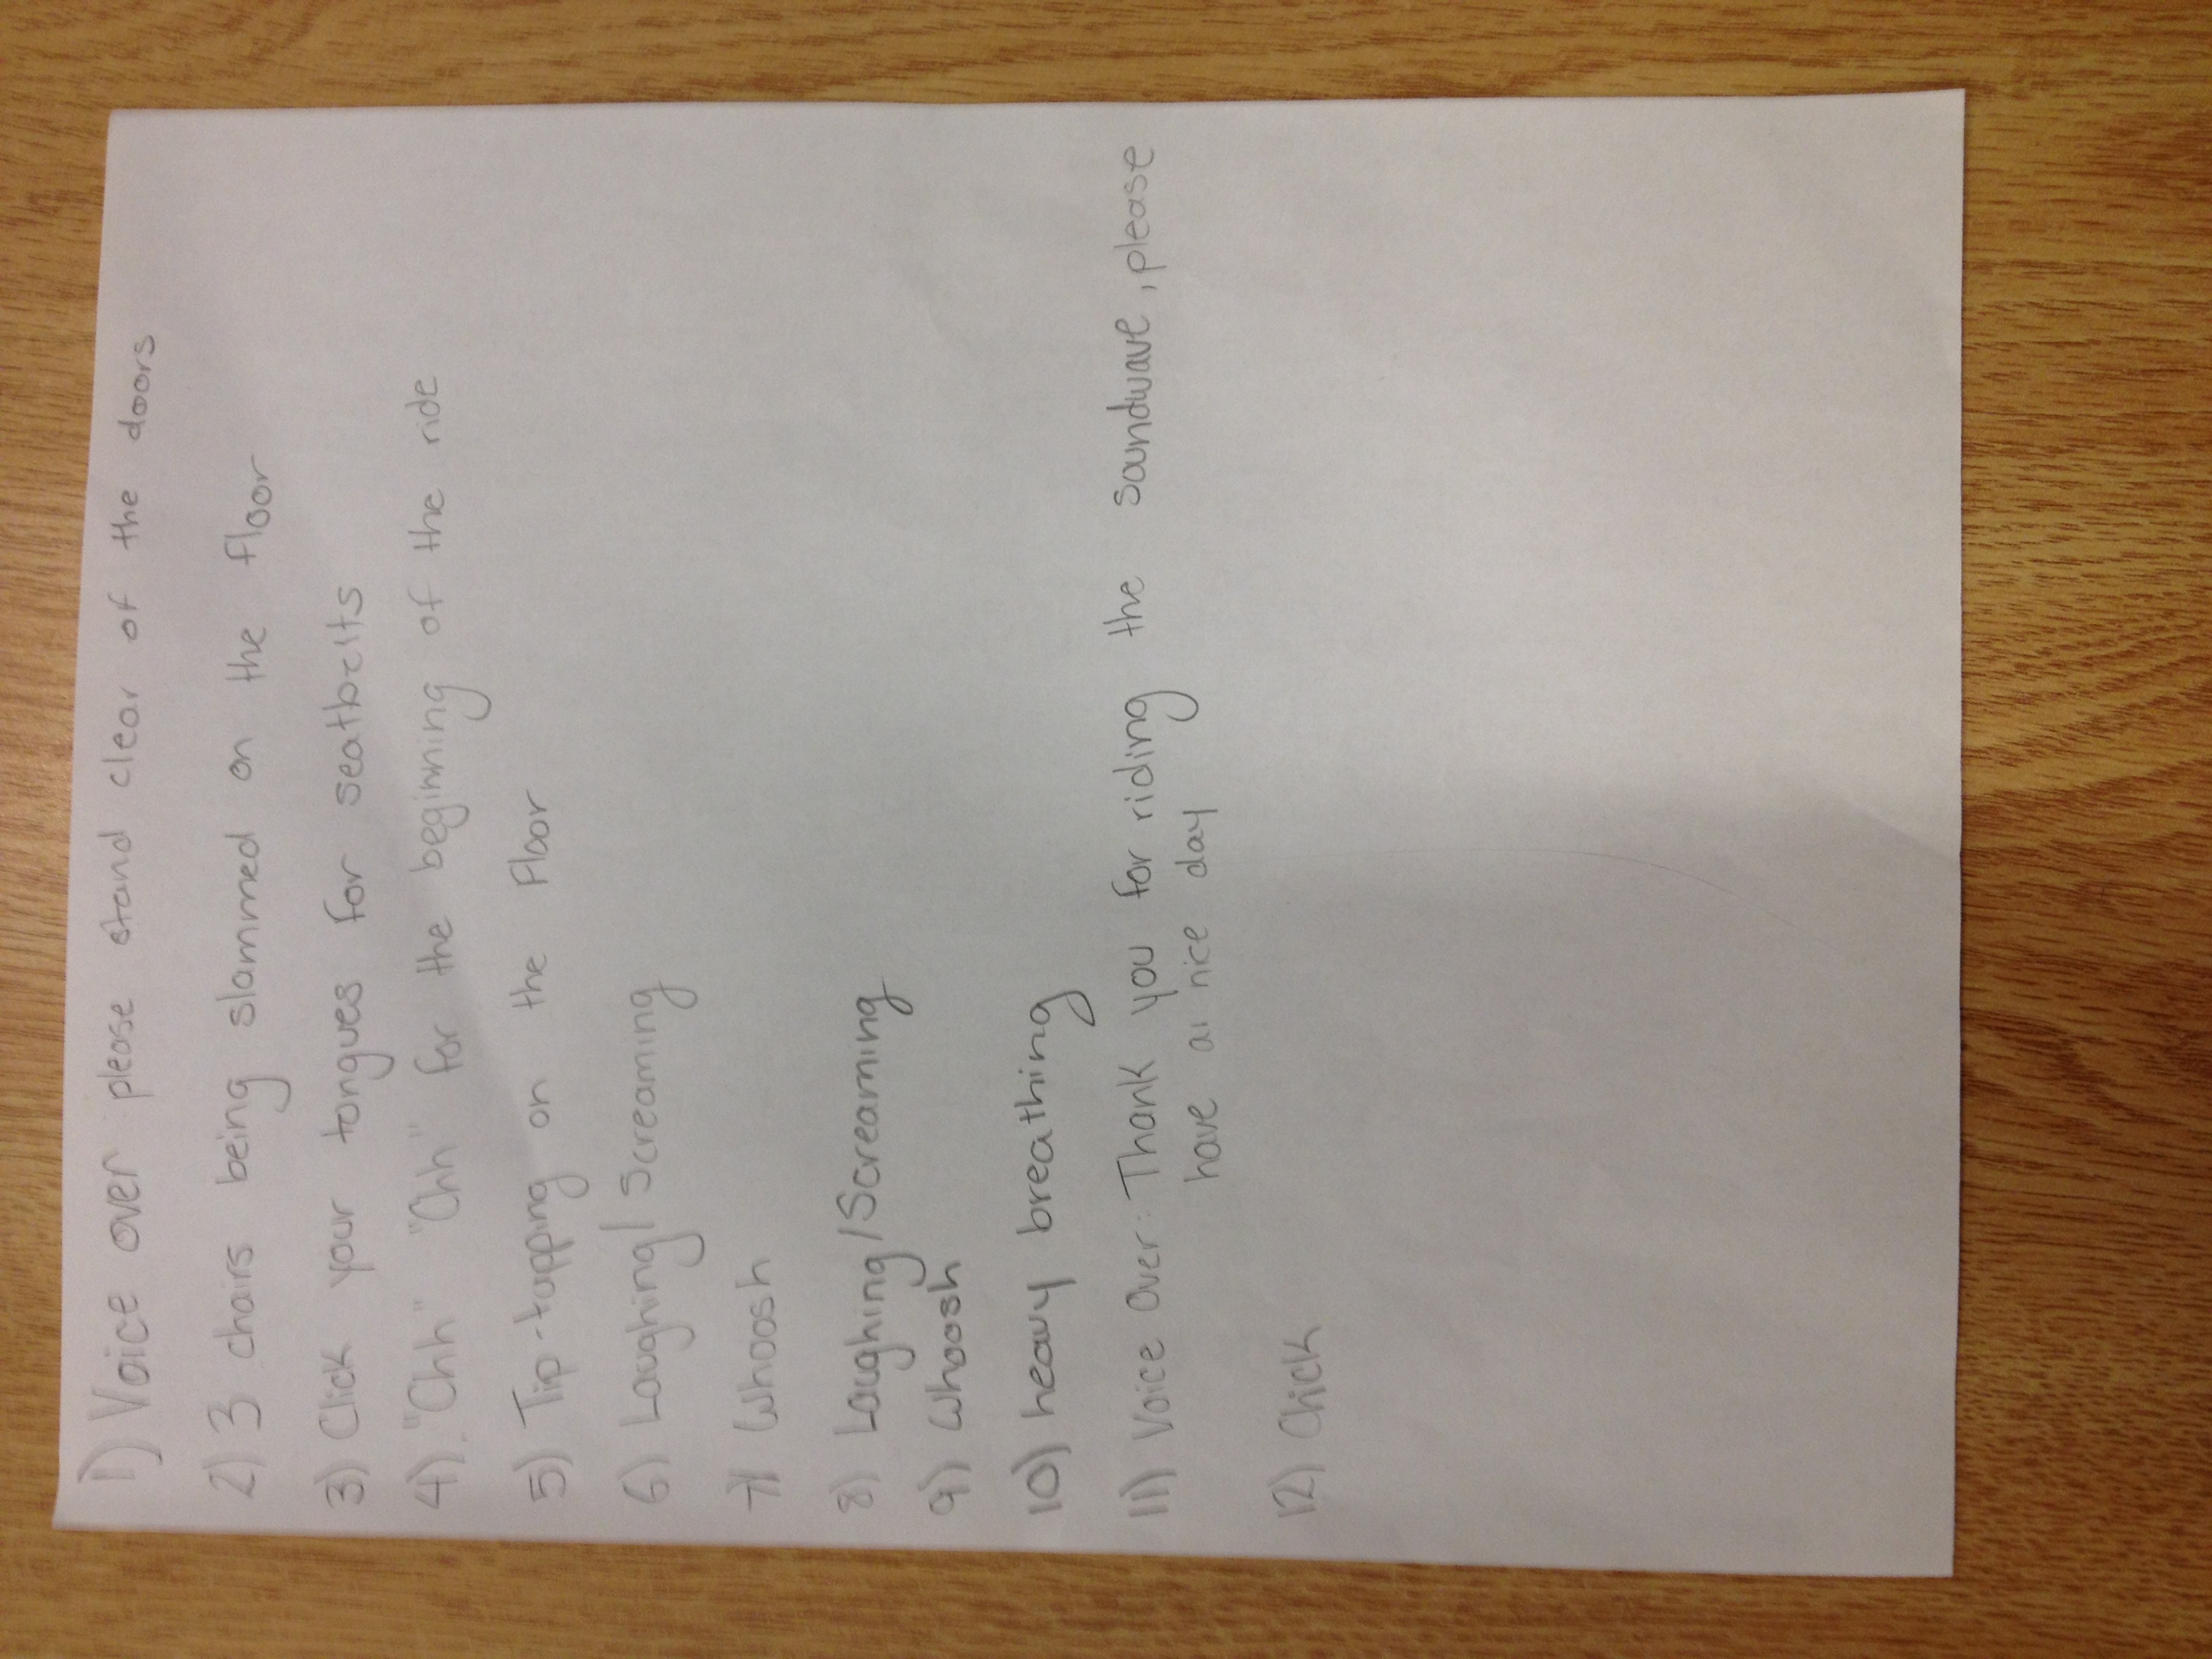 1) Voice over please stand clear of the doors
2) 3 chairs being slammed on the floor
3) Click your tongues for seatbelts
4) "Chh" "Chh" for the beginning of the ride
5) Tip-tapping on the Floor
6) Laughing/Screaming
7) Whoosh
8) Laughing/Screaming
9) Whoosh
10) heavy breathing
11) Voice Over: Thank you for riding the soundwave, please
have a nice day
12) Click